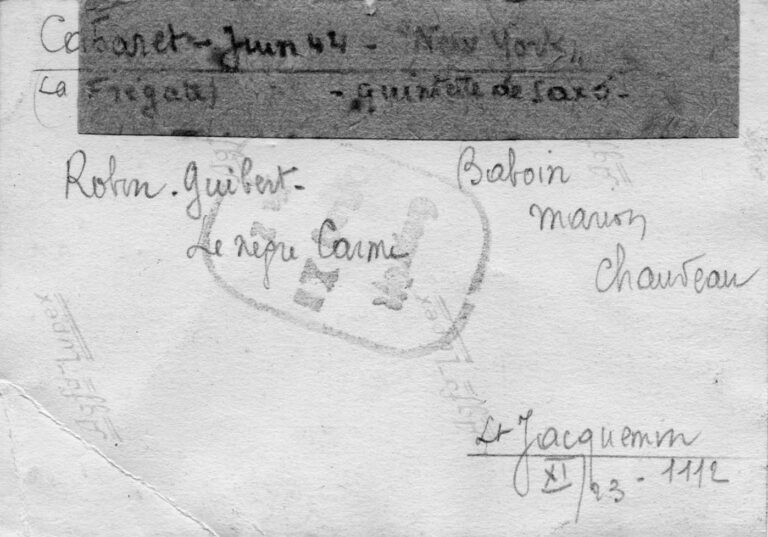 Cabaret - Juin 44 - "New York"
(La Frégate) - Quintette de Saxo -
Robin - Guibert -
Le nègre Carme
Baboin
Marion
Chauveau
Lt Jacquemin
XI / 23 - 1112
Agfa-Lupex
Agfa-Lupex